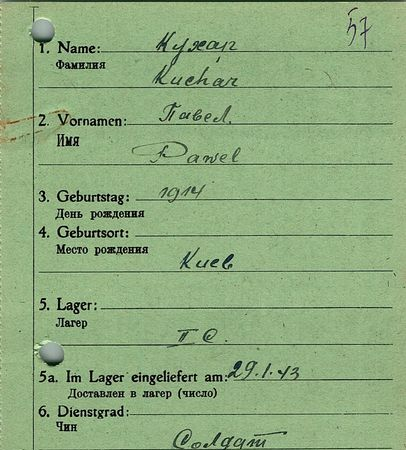 57
1. Name: Кухар
Фамилия
Kuchar
2. Vornamen: Павел.
Имя
Pawel
3. Geburtstag: 1914
День рождения
4. Geburtsort:
Место рождения
Киев
5. Lager:
Лагер
5a. Im Lager eingeliefert am: 29.1.43
Доставлен в лагер (число)
6. Dienstgrad:
Чин
Солдат